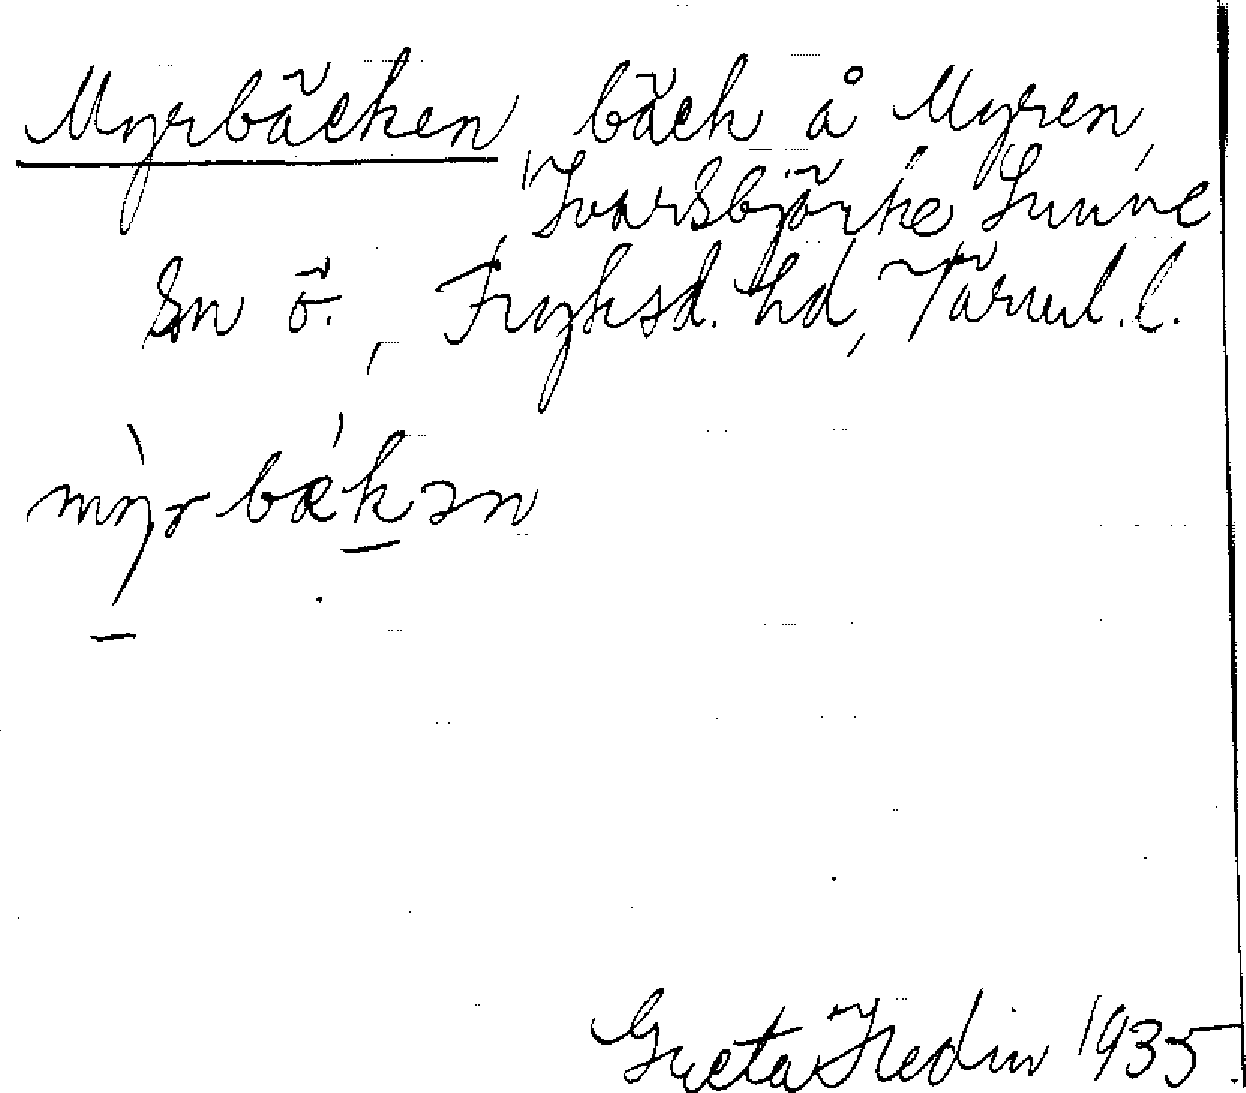 Myrbäcken, bäck å Myren,
Ivarsbjörke Sunne
sn ö., Fryksd. hd, Värml. l.
mỳrbǽkən
Greta Hedin 1935.